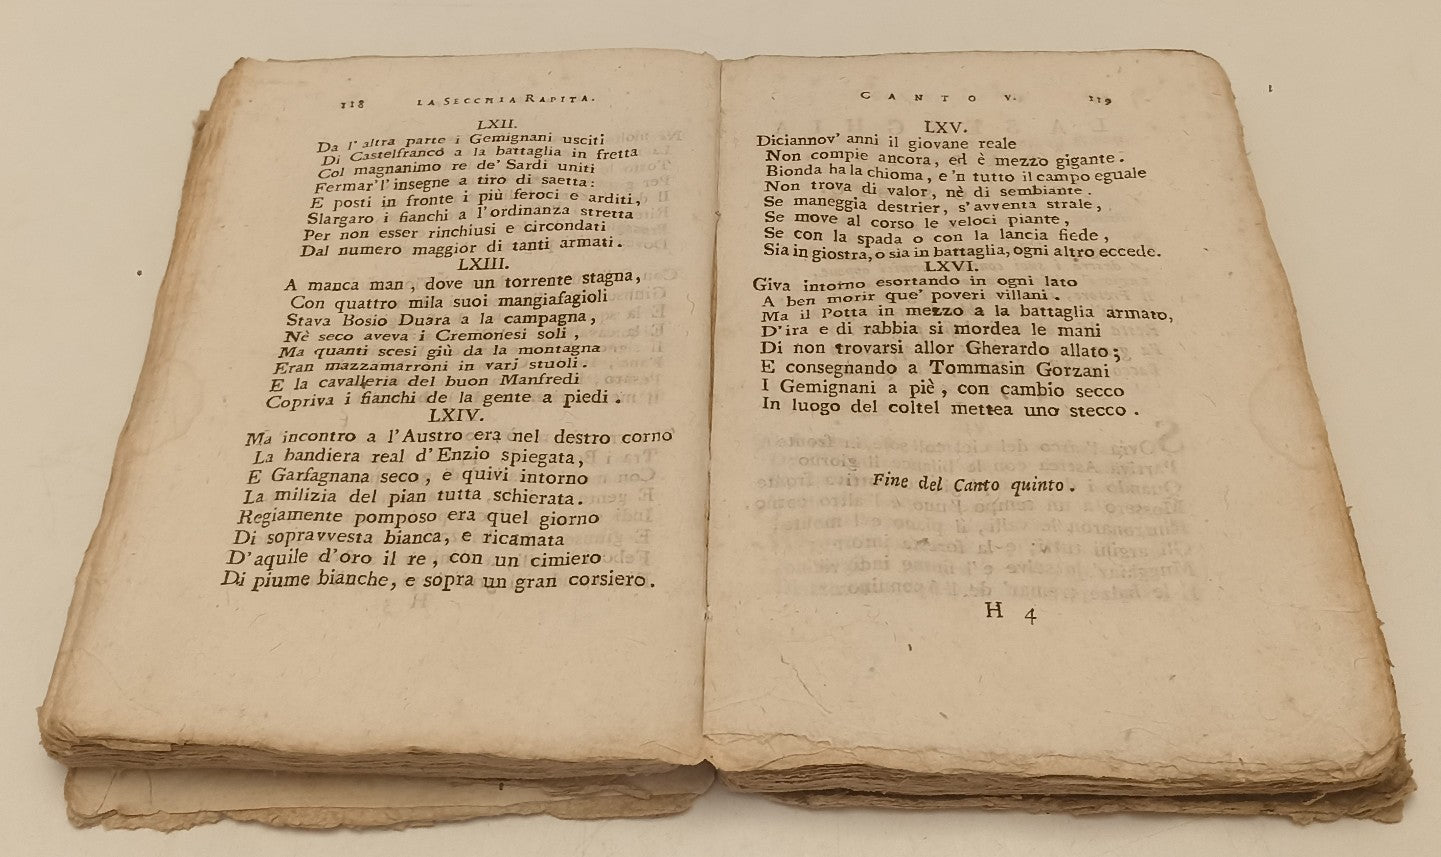 118 LA SECCHIA RAPITA.
LXII.
Da l'altra parte i Gemignani usciti
Di Castelfranco a la battaglia in fretta
Col magnanimo re de' Sardi uniti
Fermar l'insegne a tiro di saetta:
E posti in fronte i più feroci e arditi,
Slargaro i fianchi a l'ordinanza stretta
Per non esser rinchiusi e circondati
Dal numero maggior di tanti armati.
LXIII.
A manca man, dove un torrente stagna,
Con quattro mila suoi mangiafagioli
Stava Bosio Duara a la campagna,
Nè seco aveva i Cremonesi soli,
Ma quanti scesi giù da la montagna
Eran mazzamarroni in varj stuoli.
E la cavalleria del buon Manfredi
Copriva i fianchi de la gente a piedi.
LXIV.
Ma incontro a l'Austro era nel destro corno
La bandiera real d'Enzio spiegata,
E Garfagnana seco, e quivi intorno
La milizia del pian tutta schierata.
Regiamente pomposo era quel giorno
Di sopravvesta bianca, e ricamata
D'aquile d'oro il re, con un cimiero
Di piume bianche, e sopra un gran corsiero.
CANTO V. 119
LXV.
Diciannov' anni il giovane reale
Non compie ancora, ed è mezzo gigante.
Bionda ha la chioma, e 'n tutto il campo eguale
Non trova di valor, nè di sembiante.
Se maneggia destrier, s'avventa strale,
Se move al corso le veloci piante,
Se con la spada o con la lancia fiede,
Sia in giostra, o sia in battaglia, ogni altro eccede.
LXVI.
Giva intorno esortando in ogni lato
A ben morir que' poveri villani.
Ma il Potta in mezzo a la battaglia armato,
D'ira e di rabbia si mordea le mani
Di non trovarsi allor Gherardo allato;
E consegnando a Tommasin Gorzani
I Gemignani a piè, con cambio secco
In luogo del coltel mettea uno stecco.
Fine del Canto quinto.
H 4